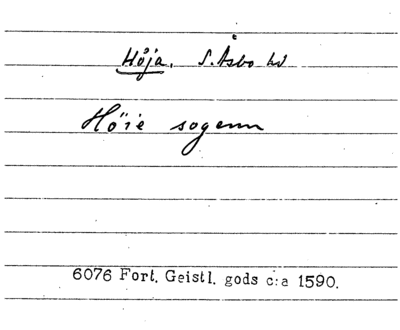 Höja. S. Åsbo hd
Höie sogenn
6076 Fort. Geistl. gods c:a 1590.